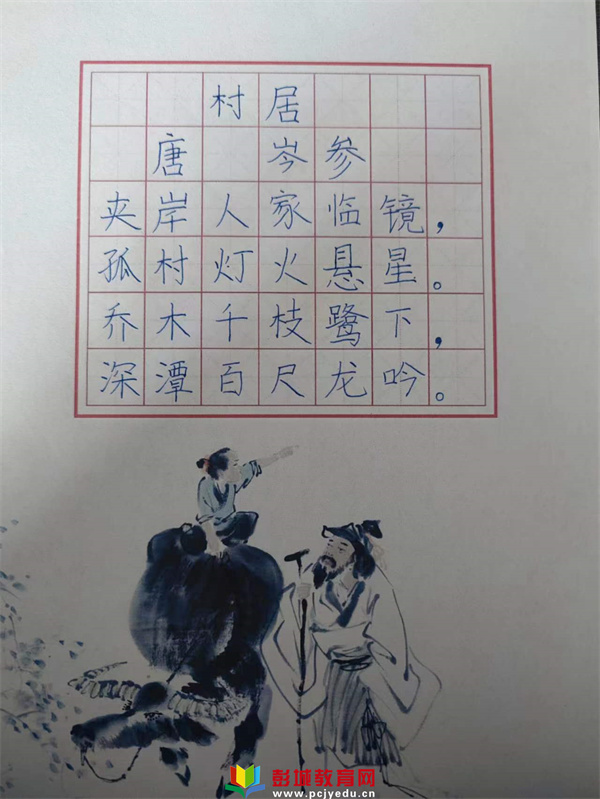 村居
唐 岑参
夹岸人家临镜，
孤村灯火悬星。
乔木千枝鹭下，
深潭百尺龙吟。
彭城教育网
www.pcjyedu.cn